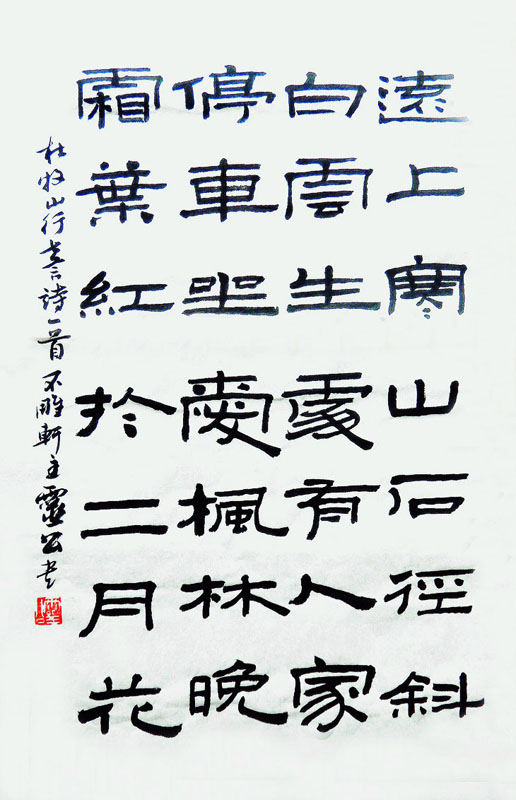 遠上寒山石徑斜
白雲生處有人家
停車坐愛楓林晚
霜葉紅於二月花
杜牧山行七言詩一首 不雕軒主靈公書